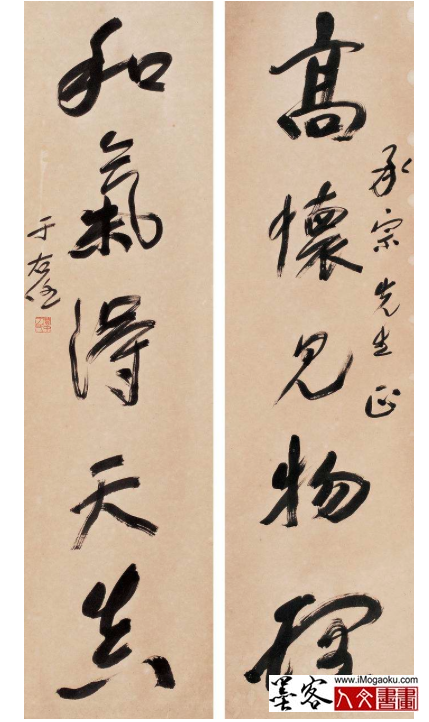 高懷見物理
承宗先生正
和氣得天真
于右任
墨客
www.iMogaoku.com
人文書畫